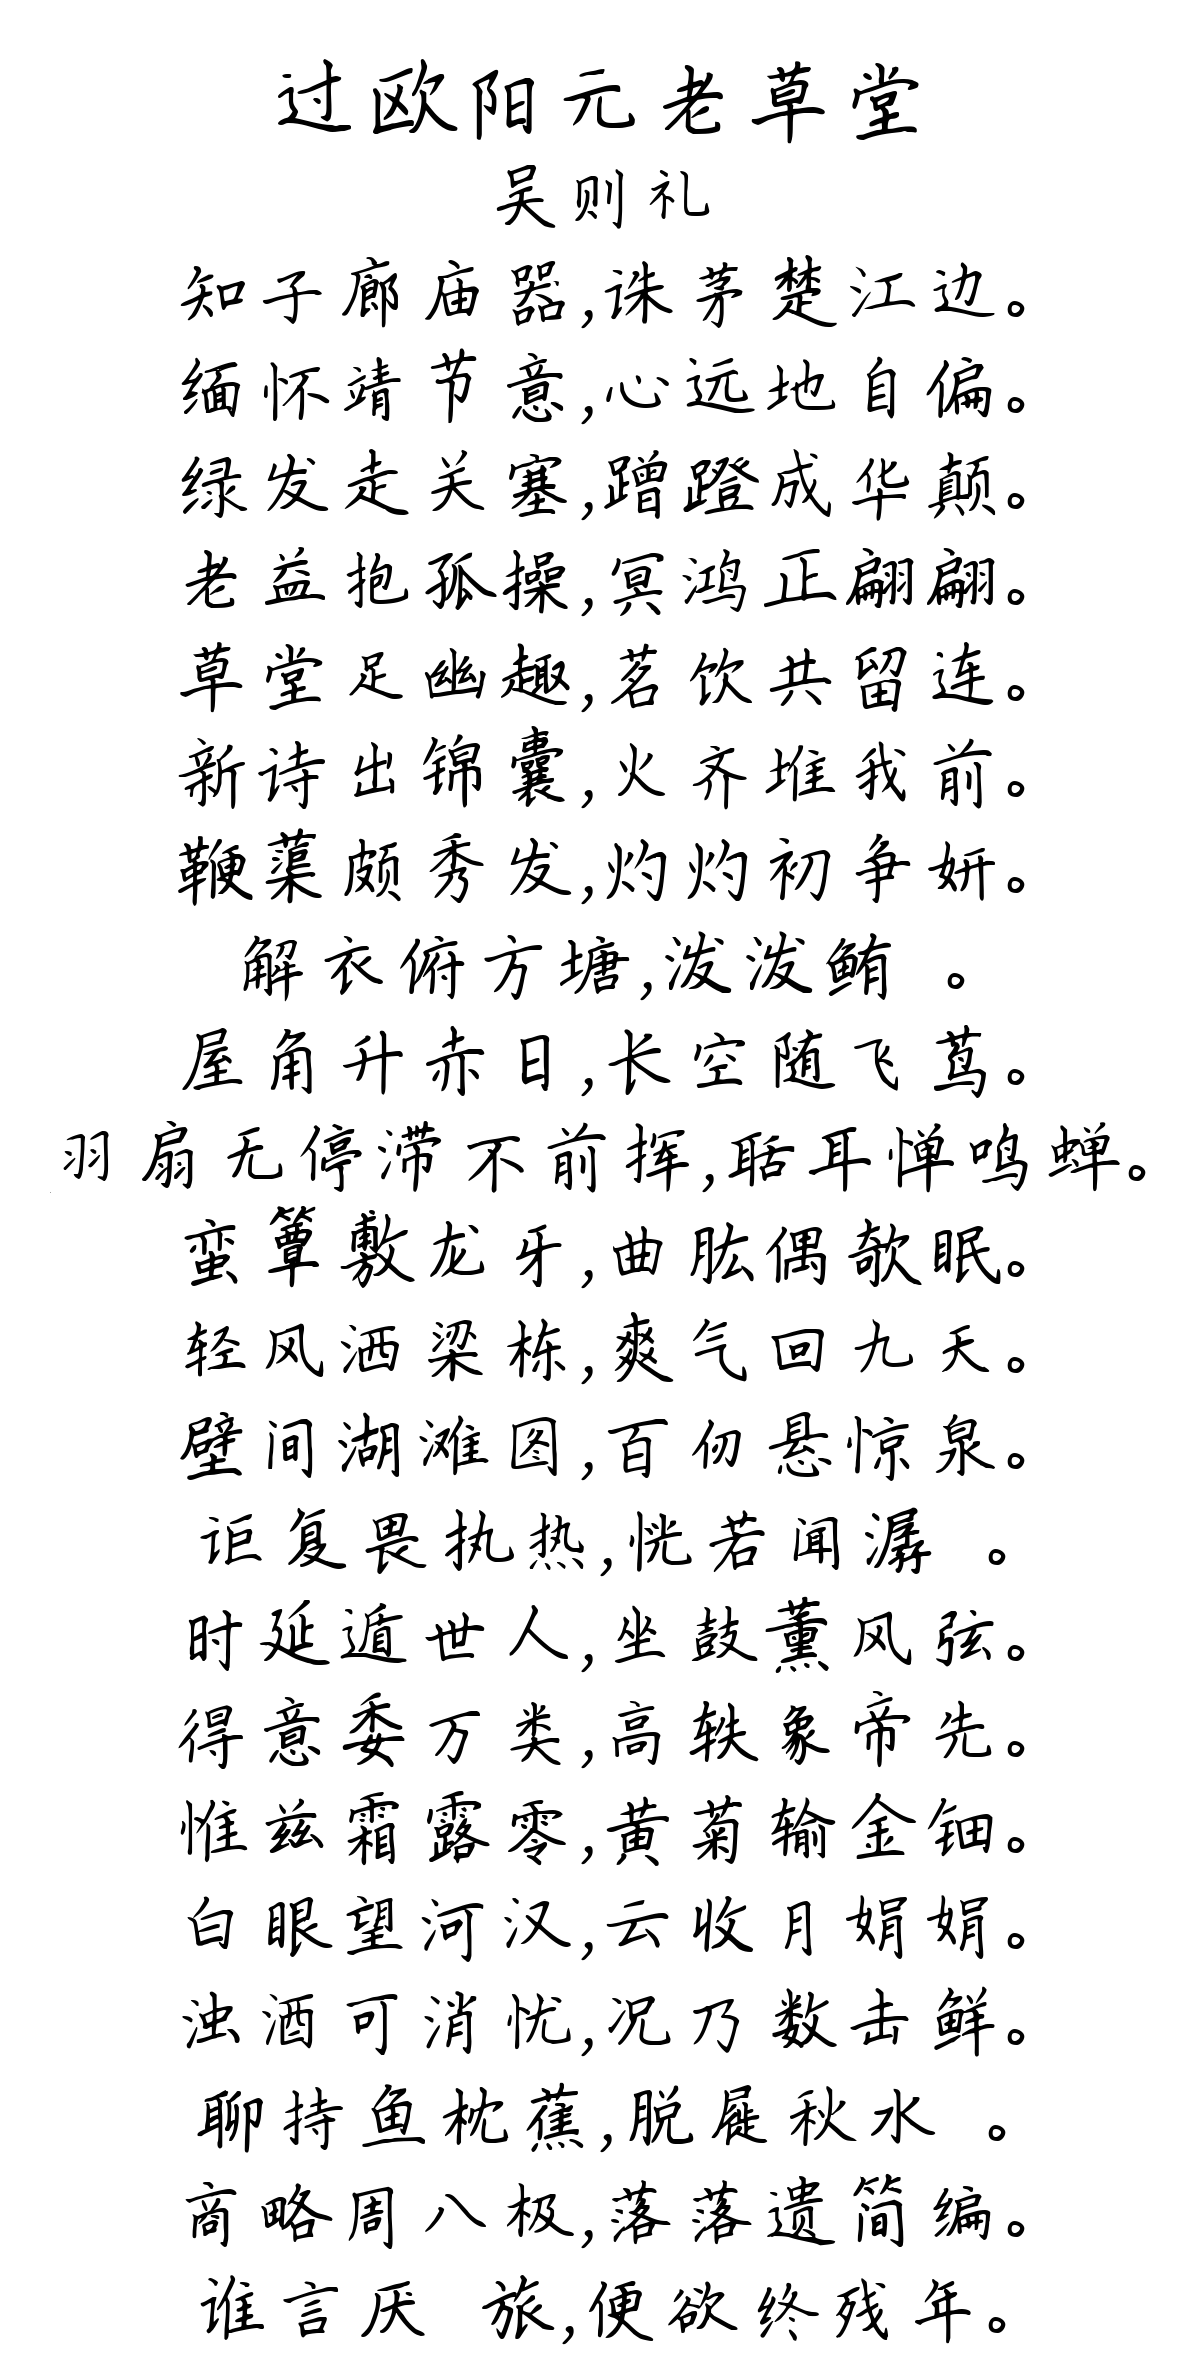 过欧阳元老草堂
吴则礼
知子廊庙器,诛茅楚江边。
缅怀靖节意,心远地自偏。
绿发走关塞,蹭蹬成华颠。
老益抱孤操,冥鸿正翩翩。
草堂足幽趣,茗饮共留连。
新诗出锦囊,火齐堆我前。
鞭蕖颇秀发,灼灼初争妍。
解衣俯方塘,泼泼鲔 。
屋角升赤日,长空随飞茑。
羽扇无停滞不前挥,聒耳惮鸣蝉。
蛮簟敷龙牙,曲肱偶欹眠。
轻风洒梁栋,爽气回九天。
壁间湖滩图,百仞悬惊泉。
讵复畏执热,恍若闻潺 。
时延遁世人,坐鼓薰风弦。
得意委万类,高轶象帝先。
惟兹霜露零,黄菊输金钿。
白眼望河汉,云收月娟娟。
浊酒可消忧,况乃数击鲜。
聊持鱼枕蕉,脱屣秋水 。
商略周八极,落落遗简编。
谁言厌 旅,便欲终残年。